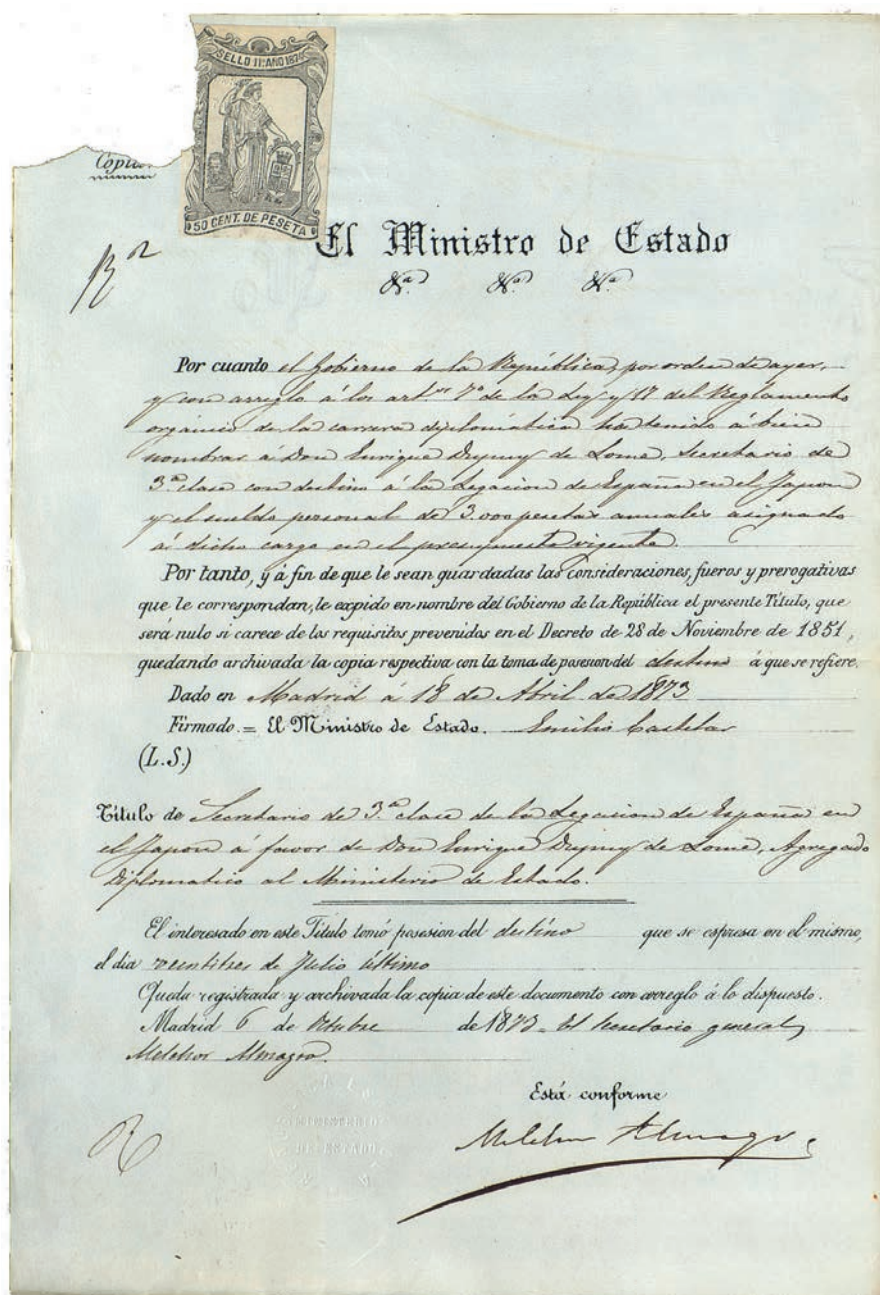 SELLO 11º AÑO 187
50 CENT. DE PESETA
Copia
El Ministro de Estado
&ª &ª &ª
Por cuanto el Gobierno de la República, por orden de ayer,
y con arreglo á los artºs 7º de la Ley y 17 del Reglamento
orgánico de la carrera diplomática ha tenido á bien
nombrar á Don Enrique Dupuy de Lome, Secretario de
3ª clase con destino á la Legacion de España en el Japon
y el sueldo personal de 3.000 pesetas anuales asignado
á dicho cargo en el presupuesto vigente.
Por tanto, y á fin de que le sean guardadas las consideraciones, fueros y prerogativas
que le correspondan, le expido en nombre del Gobierno de la República el presente Título, que
será nulo si carece de los requisitos prevenidos en el Decreto de 28 de Noviembre de 1851,
quedando archivada la copia respectiva con la toma de posesion del destino á que se refiere.
Dado en Madrid á 18 de Abril de 1873
Firmado = El Ministro de Estado. Emilio Castelar
(L.S.)
Título de Secretario de 3ª clase de la Legacion de España en
el Japon á favor de Don Enrique Dupuy de Lome, Agregado
Diplomatico al Ministerio de Estado.
El interesado en este Título tomó posesion del destino que se espresa en el mismo,
el dia veintitres de Julio último
Queda registrada y archivada la copia de este documento con arreglo á lo dispuesto.
Madrid 6 de Octubre de 1873 = El Secretario general,
Melchor Almagro.
Está conforme
Melchor Almagro
MINISTERIO
DE ESTADO